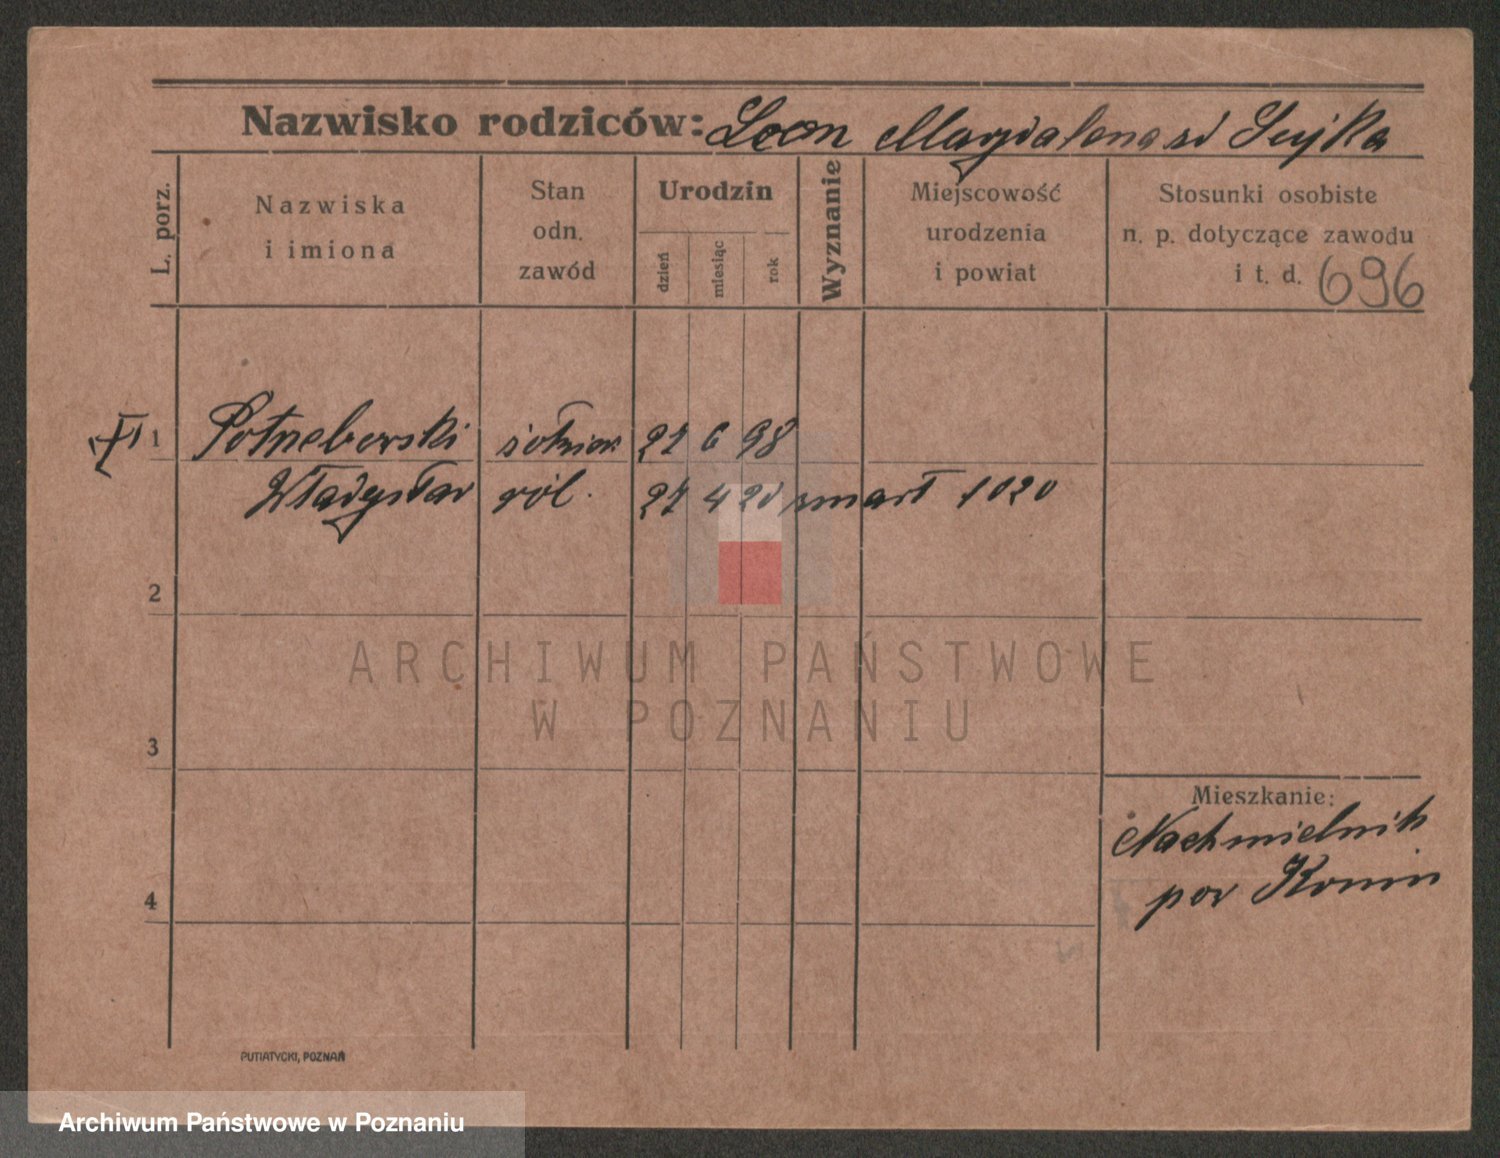 Nazwisko rodziców: Leon Magdalena
L. porz.
Nazwiska
i imiona
Stan
odn.
zawód
Urodzin
dzień
miesiąc
rok
Wyznanie
Miejscowość
urodzenia
i powiat
Stosunki osobiste
n. p. dotyczące zawodu
i t. d. 696
1 żołnierz 27 6 98
Władysław rol. 27 4 20 zmarł 1020
2
3
4
Mieszkanie:
Nachmielnik
pow Konin
PUTIATYCKI, POZNAŃ
ARCHIWUM PAŃSTWOWE
W POZNANIU
Archiwum Państwowe w Poznaniu